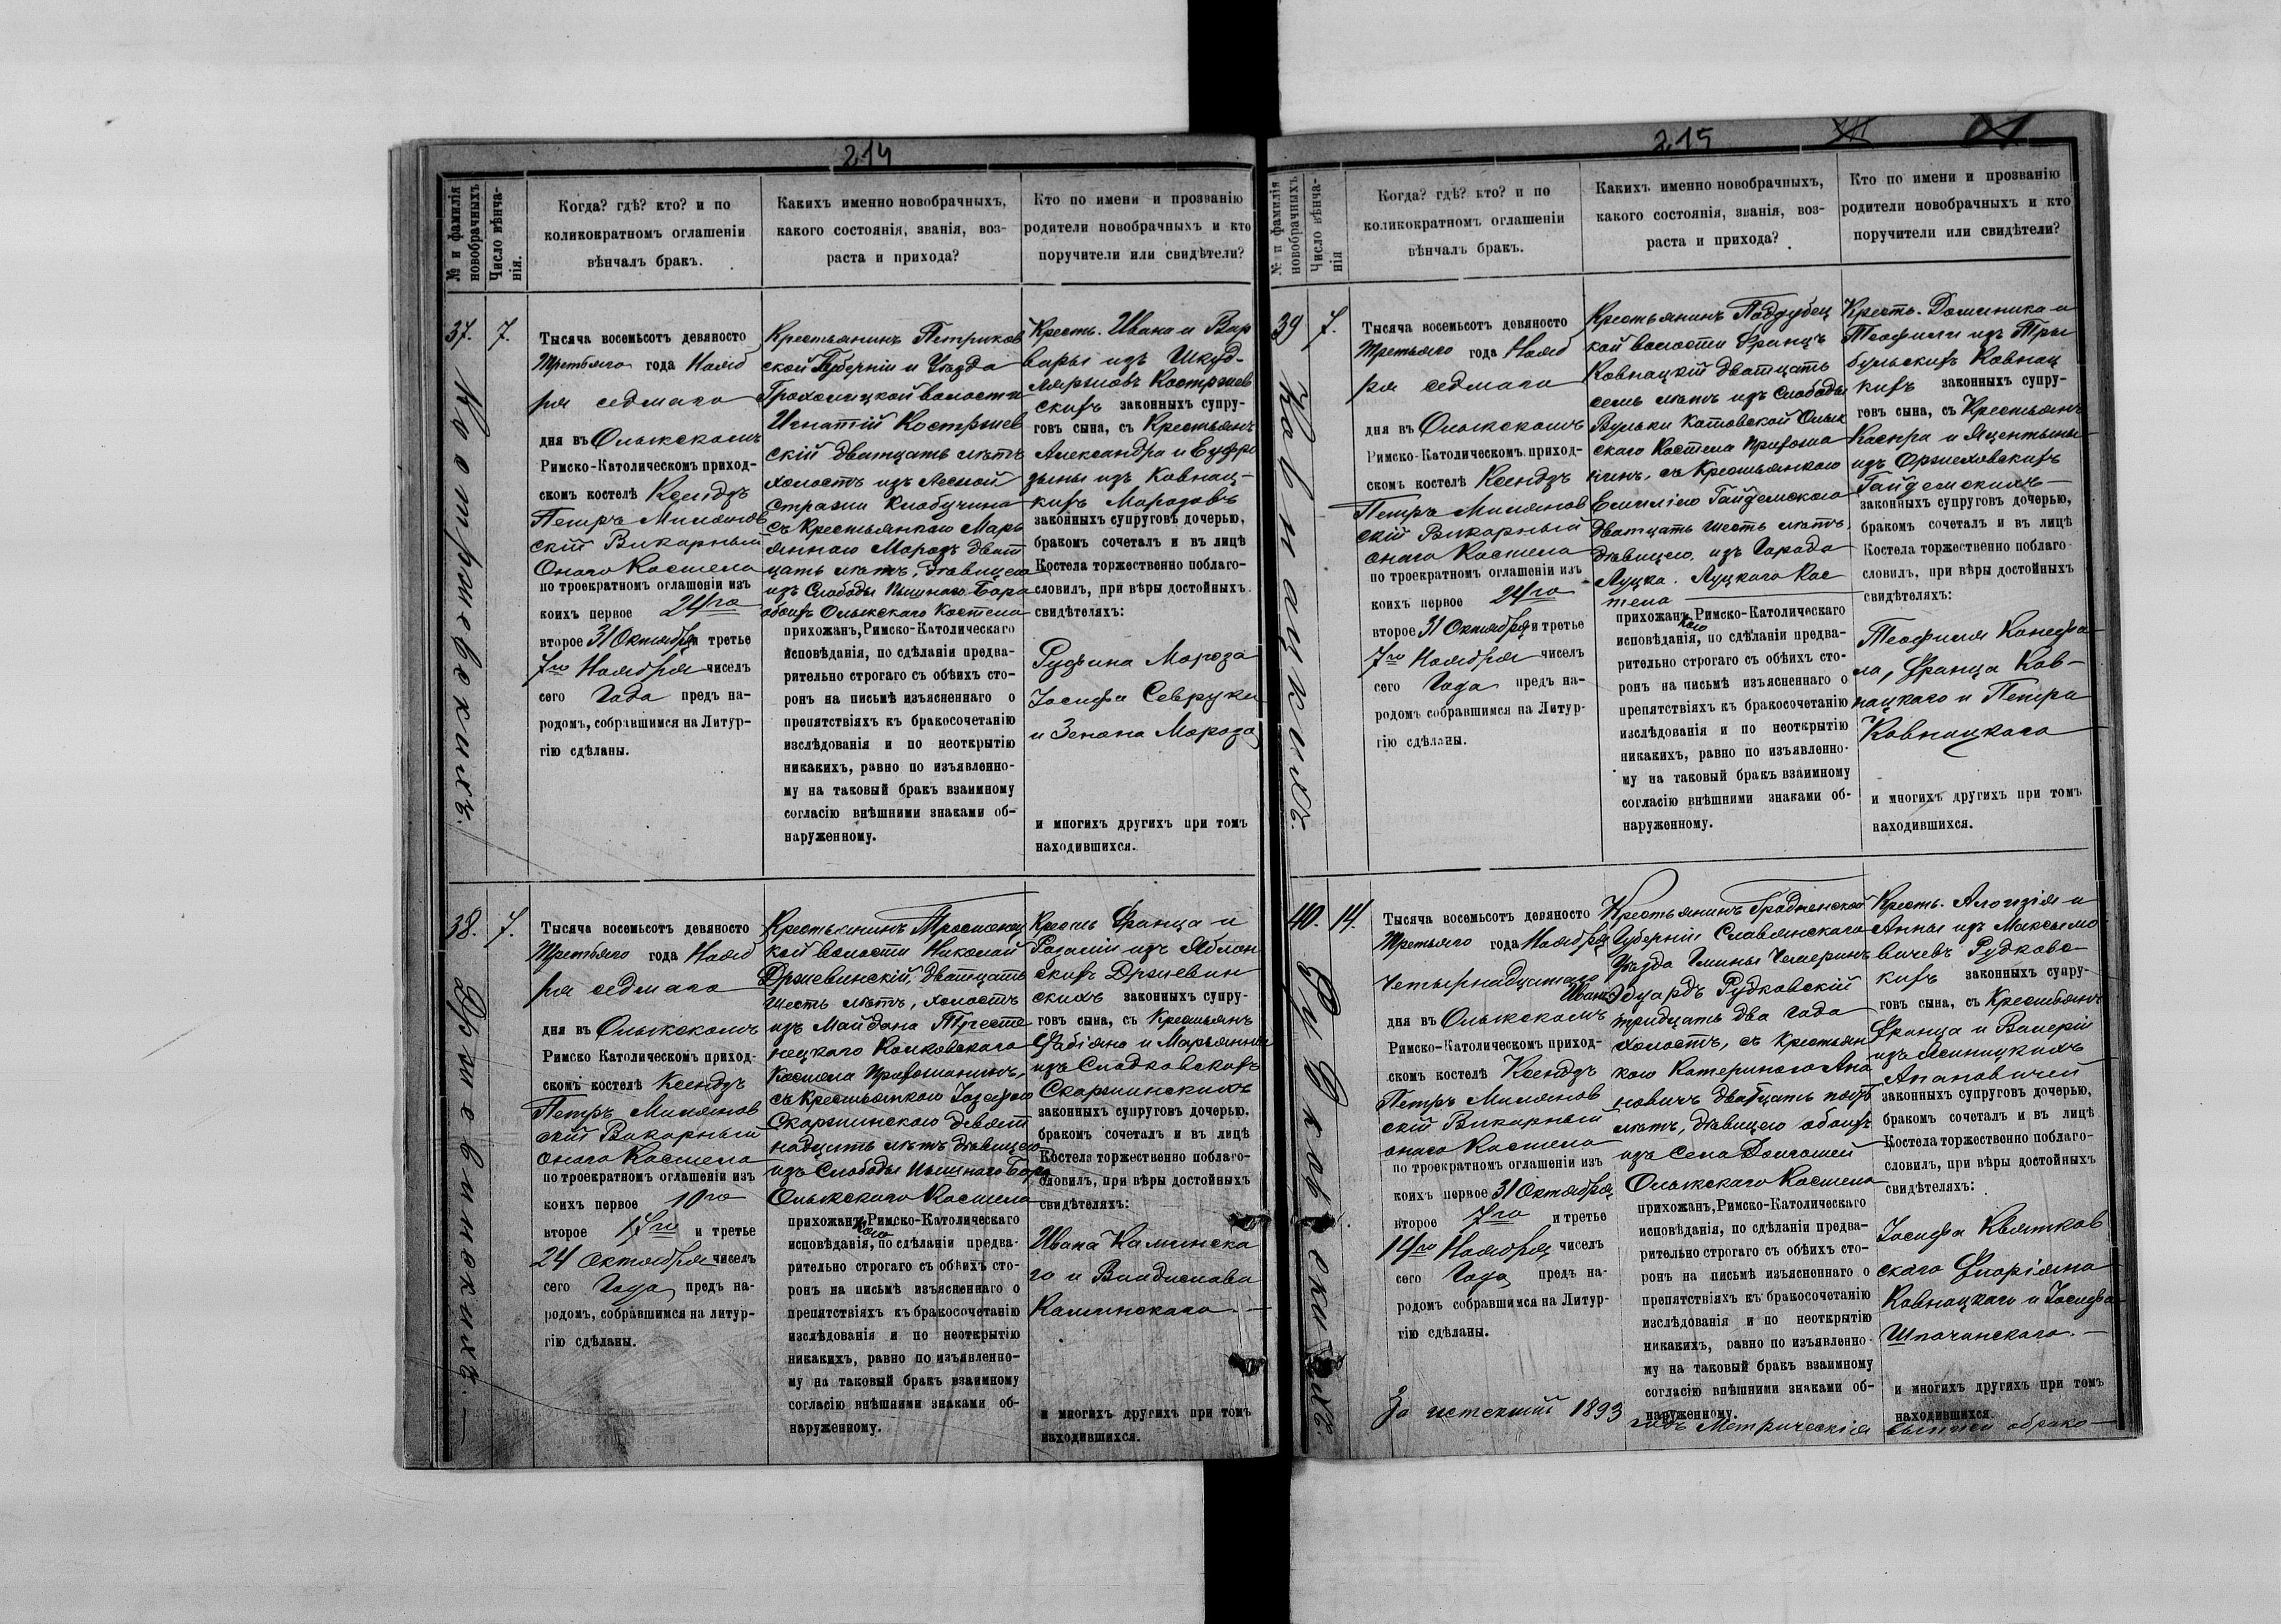 214
№ и фамилія новобрачныхъ
Число вѣнчанія.
Когда? гдѣ? кто? и по
коликократномъ оглашеніи
вѣнчалъ бракъ.
Какихъ именно новобрачныхъ,
какого состоянія, званія, воз-
раста и прихода?
Кто по имени и прозванію
родители новобрачныхъ и кто
поручители или свидѣтели?
37.
7.
Тысяча восемьсотъ девяносто
Третьяго года Нояб
ря седмаго
дня въ Олыкскомъ
Римско-Католическомъ приход-
скомъ костелѣ Ксендзъ
Петръ Милянов
скій Викарный
Онаго Костела
по троекратномъ оглашеніи изъ
коихъ первое 24го
второе 31 Октября третье
7го Ноября чиселъ
сего Года предъ на-
родомъ, собравшимся на Литур-
гію сдѣланы.
Крестьянинъ Петриков
ской Губерніи и Уѣзда
волости
Игнатій Костржев
скій двадцать лѣтъ
холостъ изъ Лесной
Стражи
съ Крестьянкою Марь
янною Морозъ двад
цать лѣтъ, дѣвицею
изъ Слободы Пышнаго Бора
обоихъ Олыкскаго Костела
прихожанъ, Римско-Католическаго
исповѣданія, по сдѣланіи предва-
рительно строгаго съ обѣихъ сто-
ронъ на письмѣ изъясненнаго о
препятствіяхъ къ бракосочетанію
изслѣдованія и по неоткрытію
никакихъ, равно по изъявленно-
му на таковый бракъ взаимному
согласію внѣшними знаками об-
наруженному.
Кресть. Ивана и Вар
вары изъ
Костржев
скихъ законныхъ супру-
говъ сына, съ Крестьянъ
Александра и Еуфро
зыны изъ Ковнац-
кихъ Морозовъ
законныхъ супруговъ дочерью,
бракомъ сочеталъ и въ лицѣ
Костела торжественно поблаго-
словилъ, при вѣры достойныхъ
свидѣтеляхъ:
Руфина Мороза
Іосифа Севрука
и Зенона Мороза
и многихъ другихъ при томъ
находившихся.
Костржевскихъ.
38.
7.
Тысяча восемьсотъ девяносто
Третьяго года Нояб
ря седмаго
дня въ Олыкскомъ
Римско Католическомъ приход-
скомъ костелѣ Ксендзъ
Петръ Милянов
скій Викарный
онаго Костела
по троекратномъ оглашеніи изъ
коихъ первое 10го
второе 17го и третье
24 Октября чиселъ
сего Года предъ на-
родомъ, собравшимся на литур-
гію сдѣланы.
Крестьянинъ
кой волости Николай
Држевинскій, двадцать
шесть лѣтъ, холостъ
изъ Майдана
Колковскаго
Костела Прихожанинъ,
съ Крестьянкою Іозефою
Скаржинскою девят
надцать лѣтъ дѣвицею
изъ Слободы Пышнаго Бора
Олыкскаго Костела
прихожанкою Римско-Католическаго
исповѣданія, по сдѣланіи предва-
рительно строгаго съ обѣихъ сто-
ронъ на письмѣ изъясненнаго о
препятствіяхъ къ бракосочетанію
изслѣдованія и по неоткрытію
никакихъ, равно по изъявленно-
му на таковый бракъ взаимному
согласію внѣшними знаками об-
наруженному.
Кресть Франца и
Розаліи изъ Яблон
скихъ Држевин
скихъ законныхъ супру-
говъ сына, съ Крестьянъ
Фабіяна и Марьянны
изъ Сладковскихъ
Скаржинскихъ
законныхъ супруговъ дочерью,
бракомъ сочеталъ и въ лицѣ
Костела торжественно поблаго-
словилъ, при вѣры достойныхъ
свидѣтеляхъ:
Ивана Каминска
го и Владислава
Каминскаго.
и многихъ другихъ при томъ
находившихся.
Држевинскихъ.
215
№ и фамилія новобрачныхъ
Число вѣнчанія
Когда? гдѣ? кто? и по
коликократномъ оглашеніи
вѣнчалъ бракъ.
Какихъ именно новобрачныхъ,
какого состоянія, званія, воз-
раста и прихода?
Кто по имени и прозванію
родители новобрачныхъ и кто
поручители или свидѣтели?
39
7.
Тысяча восемьсотъ девяносто
Третьяго года Нояб
ря седмаго
дня въ Олыкскомъ
Римско-Католическомъ приход-
скомъ костелѣ Ксендзъ
Петръ Милянов
скій Викарный
онаго Костела
по троекратномъ оглашеніи изъ
коихъ первое 24го
второе 31 Октября и третье
7го Ноября чиселъ
сего Года предъ на-
родомъ собравшимся на Литур-
гію сдѣланы.
Крестьянинъ Поддубец
кой волости Францъ
Ковнацкій двадцать
семь лѣтъ изъ Слободы
Вульки Котовской Олык
скаго Костела Прихожа
нинъ, съ Крестьянкою
Емиліею Гайдемскою
двадцать шесть лѣтъ,
дѣвицею, изъ Города
Луцка. Луцкаго Кос
тела
прихожанкою Римско-Католическаго
исповѣданія, по сдѣланіи предва-
рительно строгаго съ обѣихъ сто-
ронъ на письмѣ изъясненнаго о
препятствіяхъ къ бракосочетанію
изслѣдованія и по неоткрытію
никакихъ, равно по изъявленно-
му на таковый бракъ взаимному
согласію внѣшними знаками об-
наруженному.
Кресть. Доминика и
Теофили изъ Тры
бульскихъ Ковнац
кихъ законныхъ супру-
говъ сына, съ Крестьянъ
Каспра и Яцентыны
изъ Оржеховскихъ
Гайдемскихъ
законныхъ супруговъ дочерью,
бракомъ сочеталъ и въ лицѣ
Костела торжественно поблаго-
словилъ, при вѣры достойныхъ
свидѣтеляхъ:
Теофиля Канефа
ла, Франца Ков-
нацкаго и Петра
Ковнацкаго
и многихъ другихъ при томъ
находившихся.
Ковнацкихъ.
40.
14.
Тысяча восемьсотъ девяносто
Третьяго года Ноября
Четырнадцатаго
дня въ Олыкскомъ
Римско-Католическомъ приход-
скомъ костелѣ Ксендзъ
Петръ Милянов
скій Викарный
онаго Костела
по троекратномъ оглашеніи изъ
коихъ первое 31 Октября
второе 7го и третье
14го Ноября чиселъ
сего Года предъ на-
родомъ собравшимся на Литур-
гію сдѣланы.
Крестьянинъ Гродненской
Губерніи Славянскаго
Уѣзда Гмины
Иванъ Эдуардъ Рудковскій
тридцать два года
холостъ, съ Крестьян
кою Катериною Апа
новичъ двадцать пять
лѣтъ, дѣвицею обоихъ
изъ Села Долгошей
Олыкскаго Костела
прихожанъ, Римско-Католическаго
исповѣданія, по сдѣланіи предва-
рительно строгаго съ обѣихъ сто-
ронъ на письмѣ изъясненнаго о
препятствіяхъ къ бракосочетанію
изслѣдованія и по неоткрытію
никакихъ, равно по изъявленно-
му на таковый бракъ взаимному
согласію внѣшними знаками об-
наруженному.
Кресть. Алоизія и
Анны изъ Максымо
вичевъ Рудковс
кихъ законныхъ супру-
говъ сына, съ Крестьянъ
Франца и Валеріи
изъ Ясиницкихъ
Апановичей
законныхъ супруговъ дочерью,
бракомъ сочеталъ и въ лицѣ
Костела торжественно поблаго-
словилъ, при вѣры достойныхъ
свидѣтеляхъ:
Іосифа Квятков
скаго Флоріяна
Ковнацкаго и Іосифа
Шпачинскаго.
и многихъ другихъ при томъ
находившихся.
Рудковскихъ.
За истекшій 1893 годъ Метрическія